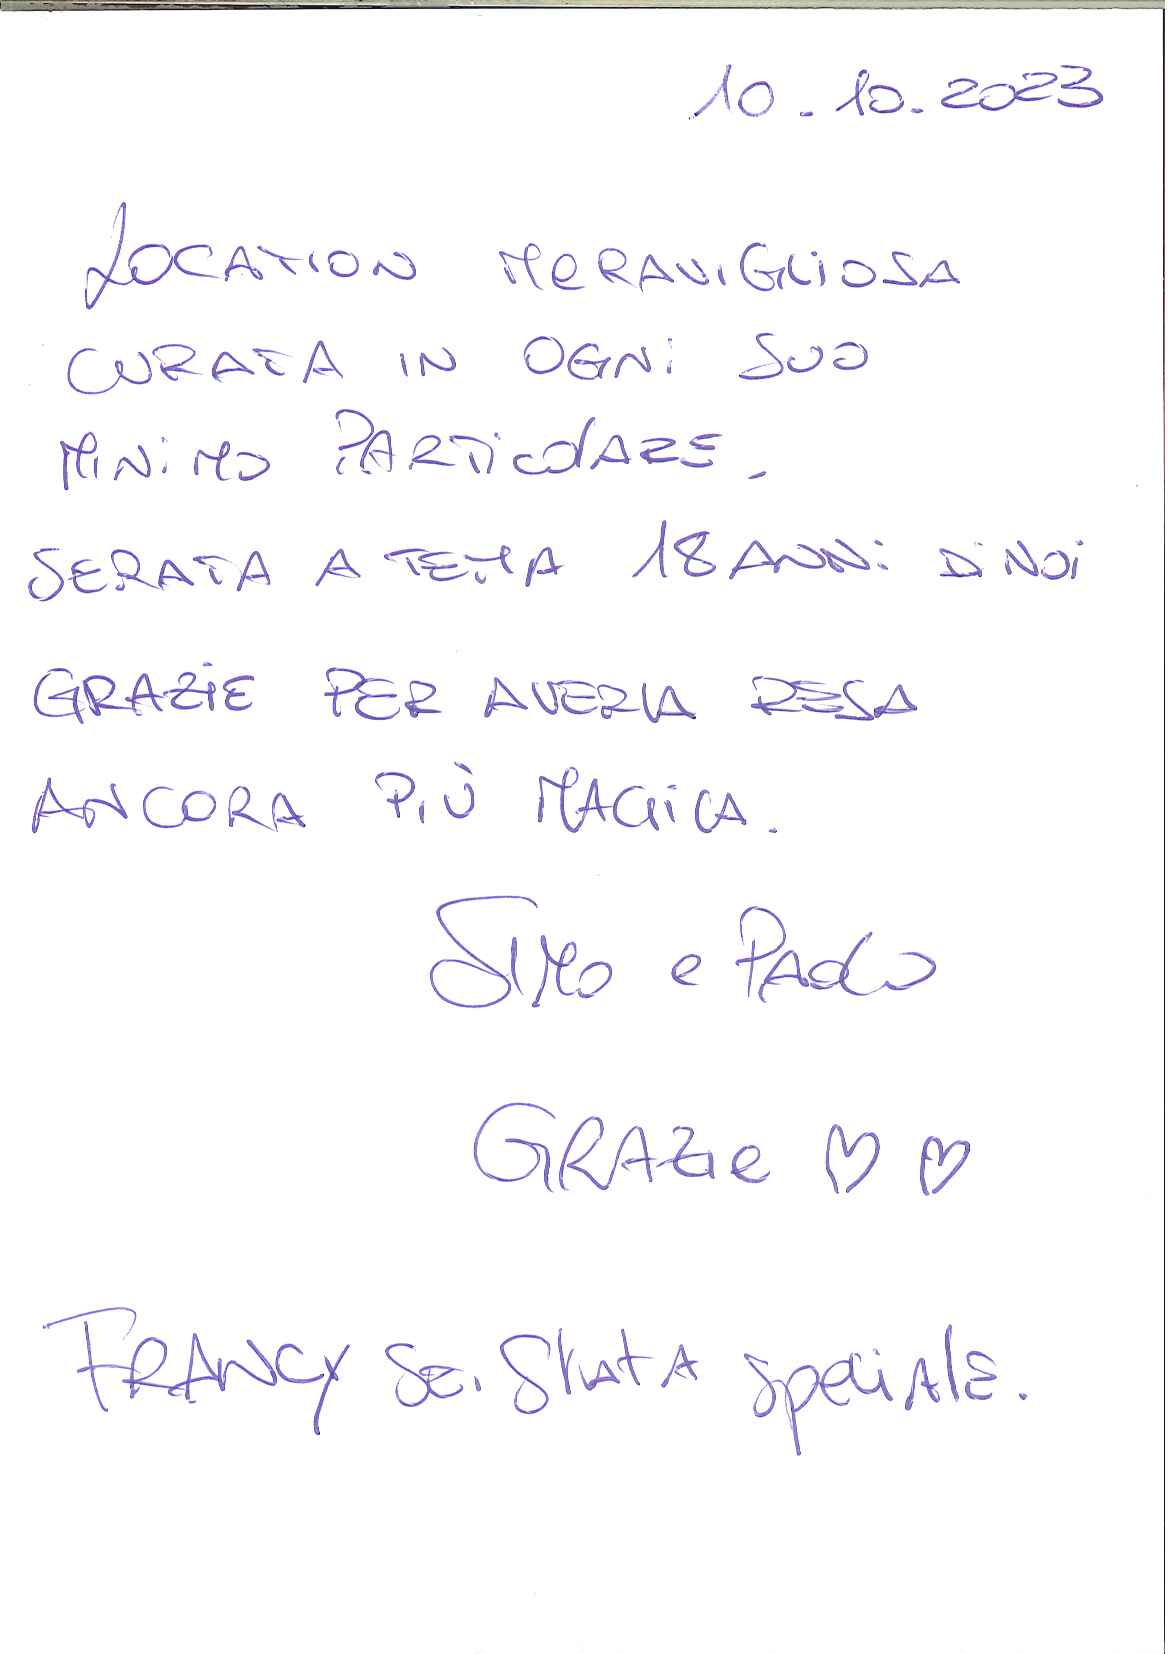 10.10.2023
LOCATION MERAVIGLIOSA
CURATA IN OGNI SUO
MINIMO PARTICOLARE.
SERATA A TEMA 18 ANNI DI NOI
GRAZIE PER AVERLA RESA
ANCORA PIÙ MAGICA.
SIMO e PAOLO
GRAZIE ♡ ♡
FRANCY SEI STATA SPECIALE.